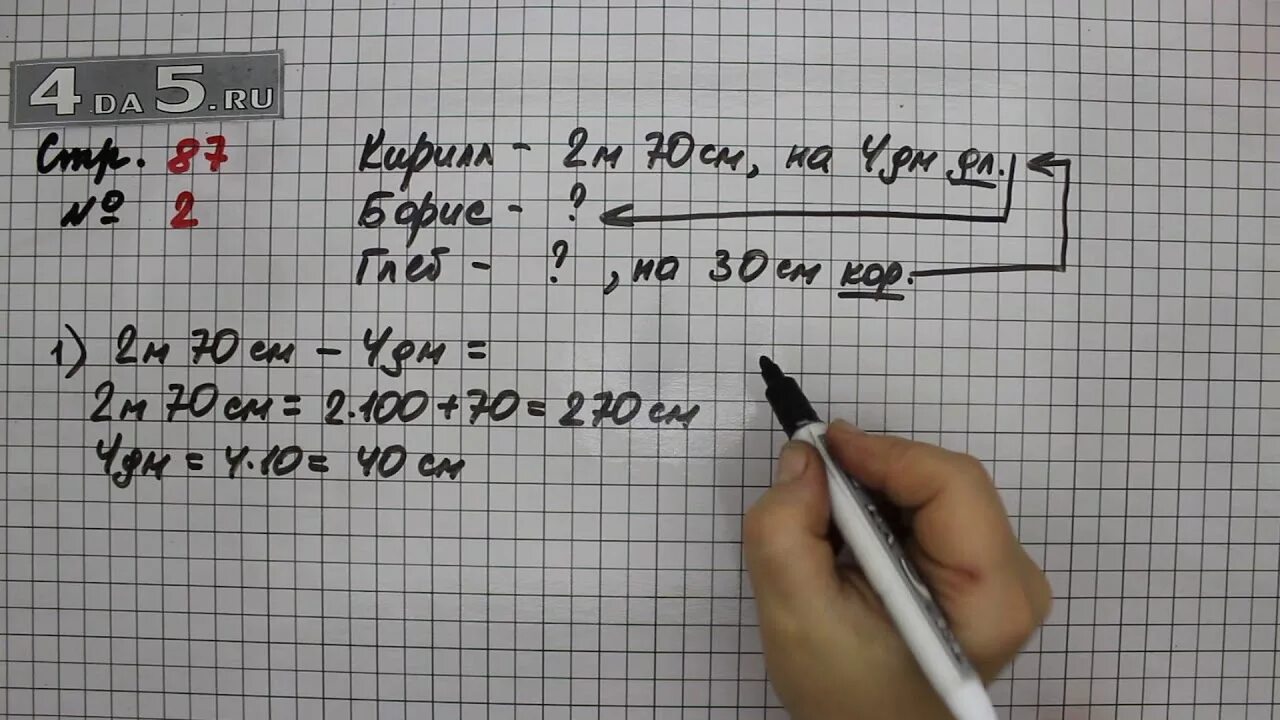 4DA5.RU
Стр. 87
№ 2
Кирилл - 2м 70см, на 4дм дл.
Борис - ?
Глеб - ?, на 30см кор.
1) 2м 70см - 4дм =
2м 70см = 2·100+70 = 270см
4дм = 4·10 = 40см